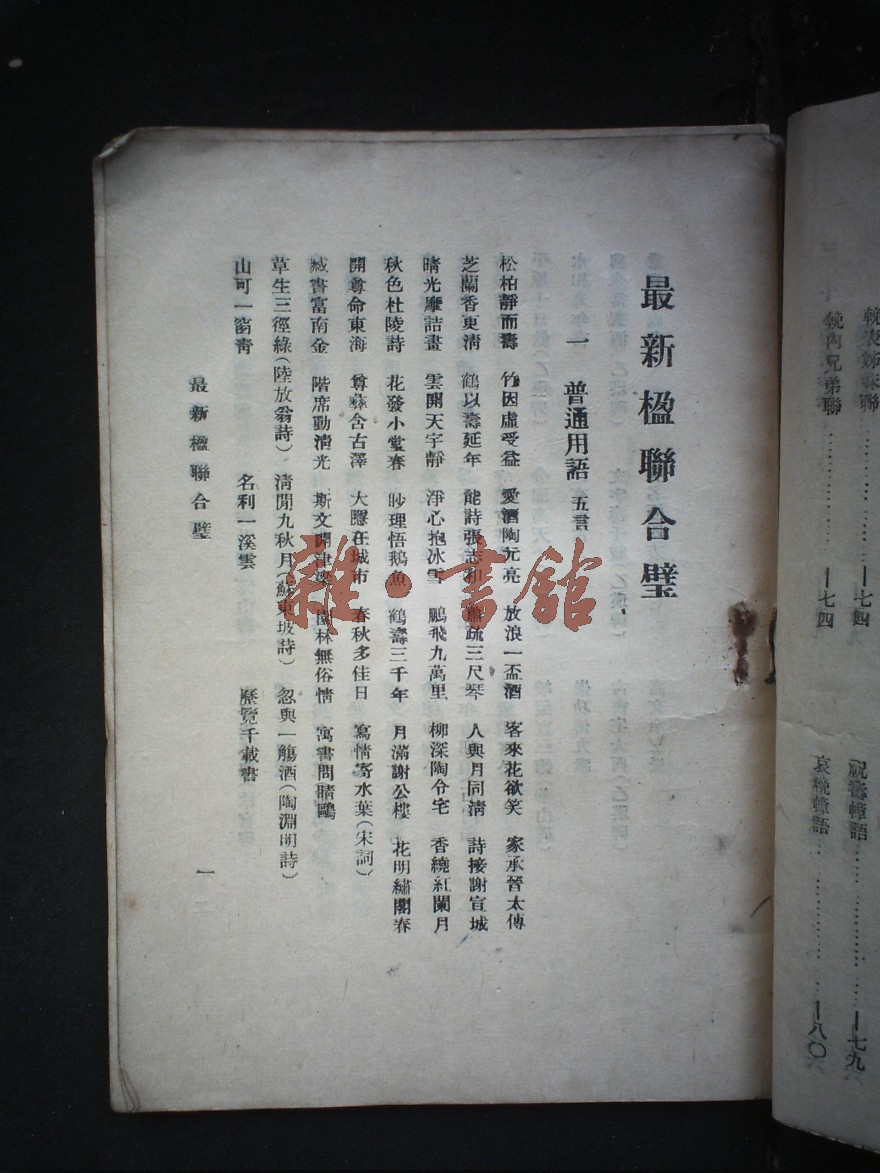 輓表姊妹聯⋯⋯⋯⋯一七四
祝壽幛語⋯⋯⋯⋯一七九
輓內兄弟聯⋯⋯⋯⋯一七四
哀輓幛語⋯⋯⋯⋯一八〇
最新楹聯合璧
一 普通用語 五言
松柏靜而壽 竹因虛受益 愛酒陶元亮 放浪一盃酒 客來花欲笑 家承晉太傅
芝蘭香更清 鶴以壽延年 能詩張志和 蕭疏三尺琴 人與月同清 詩接謝宣城
晴光摩詰畫 雲開天宇靜 淨心抱冰雪 鵬飛九萬里 柳深陶令宅 香繞紅闌月
秋色杜陵詩 花發小堂春 眇理悟鵝魚 鶴壽三千年 月滿謝公樓 花明繡閣春
開尊命東海 尊彝含古澤 大隱在城市 春秋多佳日 寫情寄水葉(宋詞)
藏書富南金 階席動清光 斯文開津梁 園林無俗情 寓書問晴鷗
草生三徑綠(陸放翁詩) 清閒九秋月(蘇東坡詩) 忽與一觴酒(陶淵明詩)
山可一窗靑 名利一溪雲 歷覽千載書
最新楹聯合璧 一
雜·書館